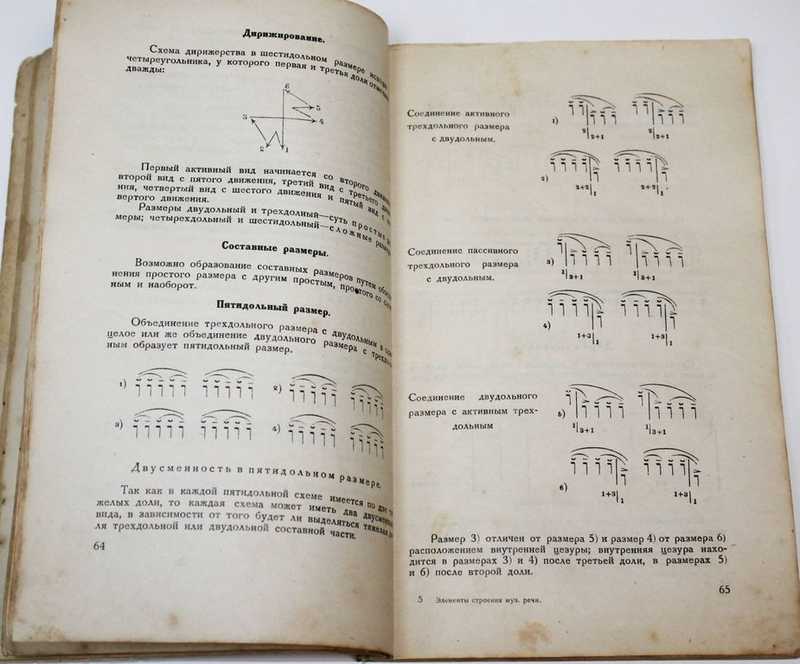 Дирижирование.
Схема дирижерства в шестидольном размере
четыреугольника, у которого первая и третья доли
дважды:
6
5
3
4
2
1
Первый активный вид начинается со второго
второй вид с пятого движения, третий вид с третьего
ния, четвертый вид с шестого движения и пятый вид с
вертого движения.
Размеры двудольный и трехдолный—суть простые
меры; четырехдольный и шестидольный—сложные
Составные размеры.
Возможно образование составных размеров путем
нения простого размера с другим простым, простого со
ным и наоборот.
Пятидольный размер.
Объединение трехдольного размера с двудольным в
целое или же объединение двудольного размера с
ным образует пятидольный размер.
1)
2)
3)
4)
Двусменность в пятидольном размере.
Так как в каждой пятидольной схеме имеется по две
желых доли, то каждая схема может иметь два
вида, в зависимости от того будет ли выделяться тяжелая
ля трехдольной или двудольной составной части.
64
Соединение активного
трехдольного размера
с двудольным.
1)
2|2+1
2|2+1
2)
2+2|1
2+2|1
Соединение пассивного
трехдольного размера
с двудольным.
3)
1|3+1
1|3+1
4)
1+3|1
1+3|1
Соединение двудольного
размера с активным трех-
дольным
5)
1|3+1
1|3+1
6)
1+3|1
1+3|1
Размер 3) отличен от размера 5) и размер 4) от размера 6)
расположением внутренней цезуры; внутренняя цезура нахо-
дится в размерах 3) и 4) после третьей доли, в размерах 5)
и 6) после второй доли.
5 Элементы строения муз. речи.
65